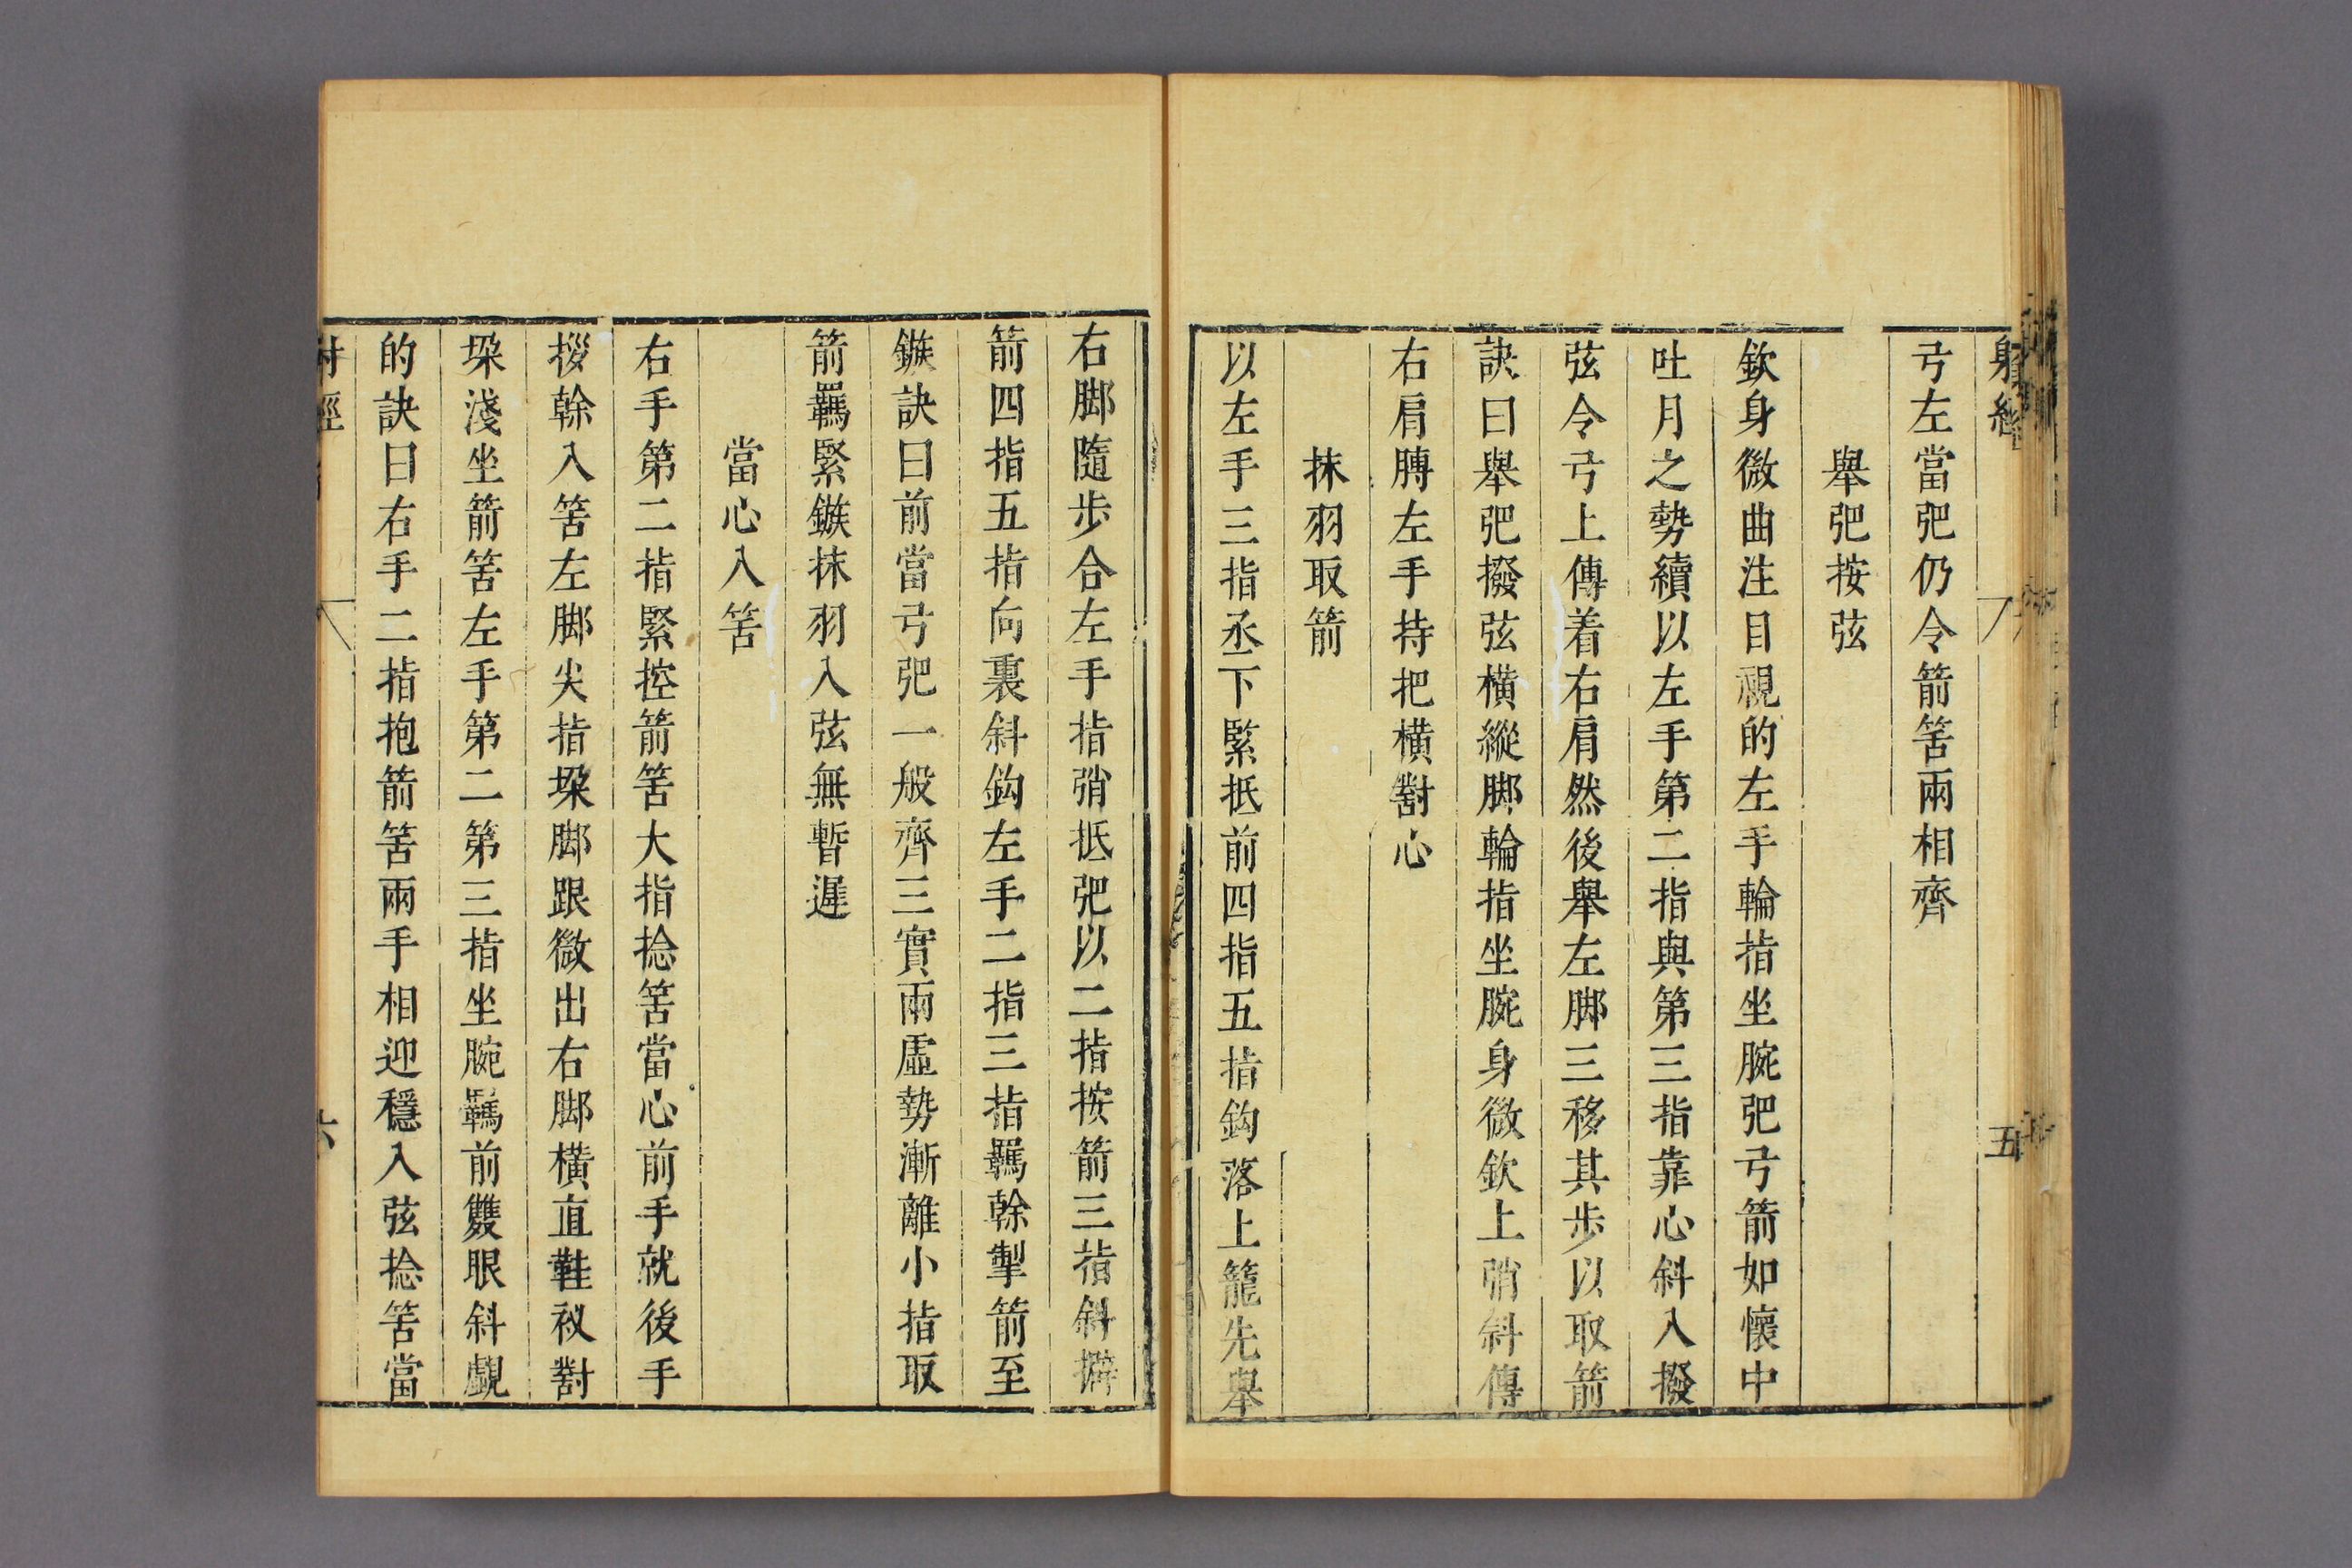 射經
五
弓左當弝仍令箭筈兩相齊
舉弝按弦
欽身微曲注目視的左手輪指坐腕弝弓箭如懷中
吐月之勢續以左手第二指與第三指靠心斜入撥
弦令弓上傳着右肩然後舉左脚三移其步以取箭
訣曰舉弝撥弦橫縱脚輪指坐腕身微欽上弰斜傳
右肩膊左手持把橫對心
抹羽取箭
以左手三指丞下緊抵前四指五指鈎落上籠先舉
右脚隨步合左手指弰抵弝以二指按箭三指斜擗
箭四指五指向裏斜鈎左手二指三指羈榦掣箭至
鏃訣曰前當弓弝一般齊三實兩虛勢漸離小指取
箭羈緊鏃抹羽入弦無暫遲
當心入筈
右手第二指緊控箭筈大指捻筈當心前手就後手
拶榦入筈左脚尖指垜脚跟微出右脚橫直鞋衩對
垜淺坐箭筈左手第二第三指坐腕羈前雙眼斜覷
的訣曰右手二指抱箭筈兩手相迎穩入弦捻筈當
射經
六